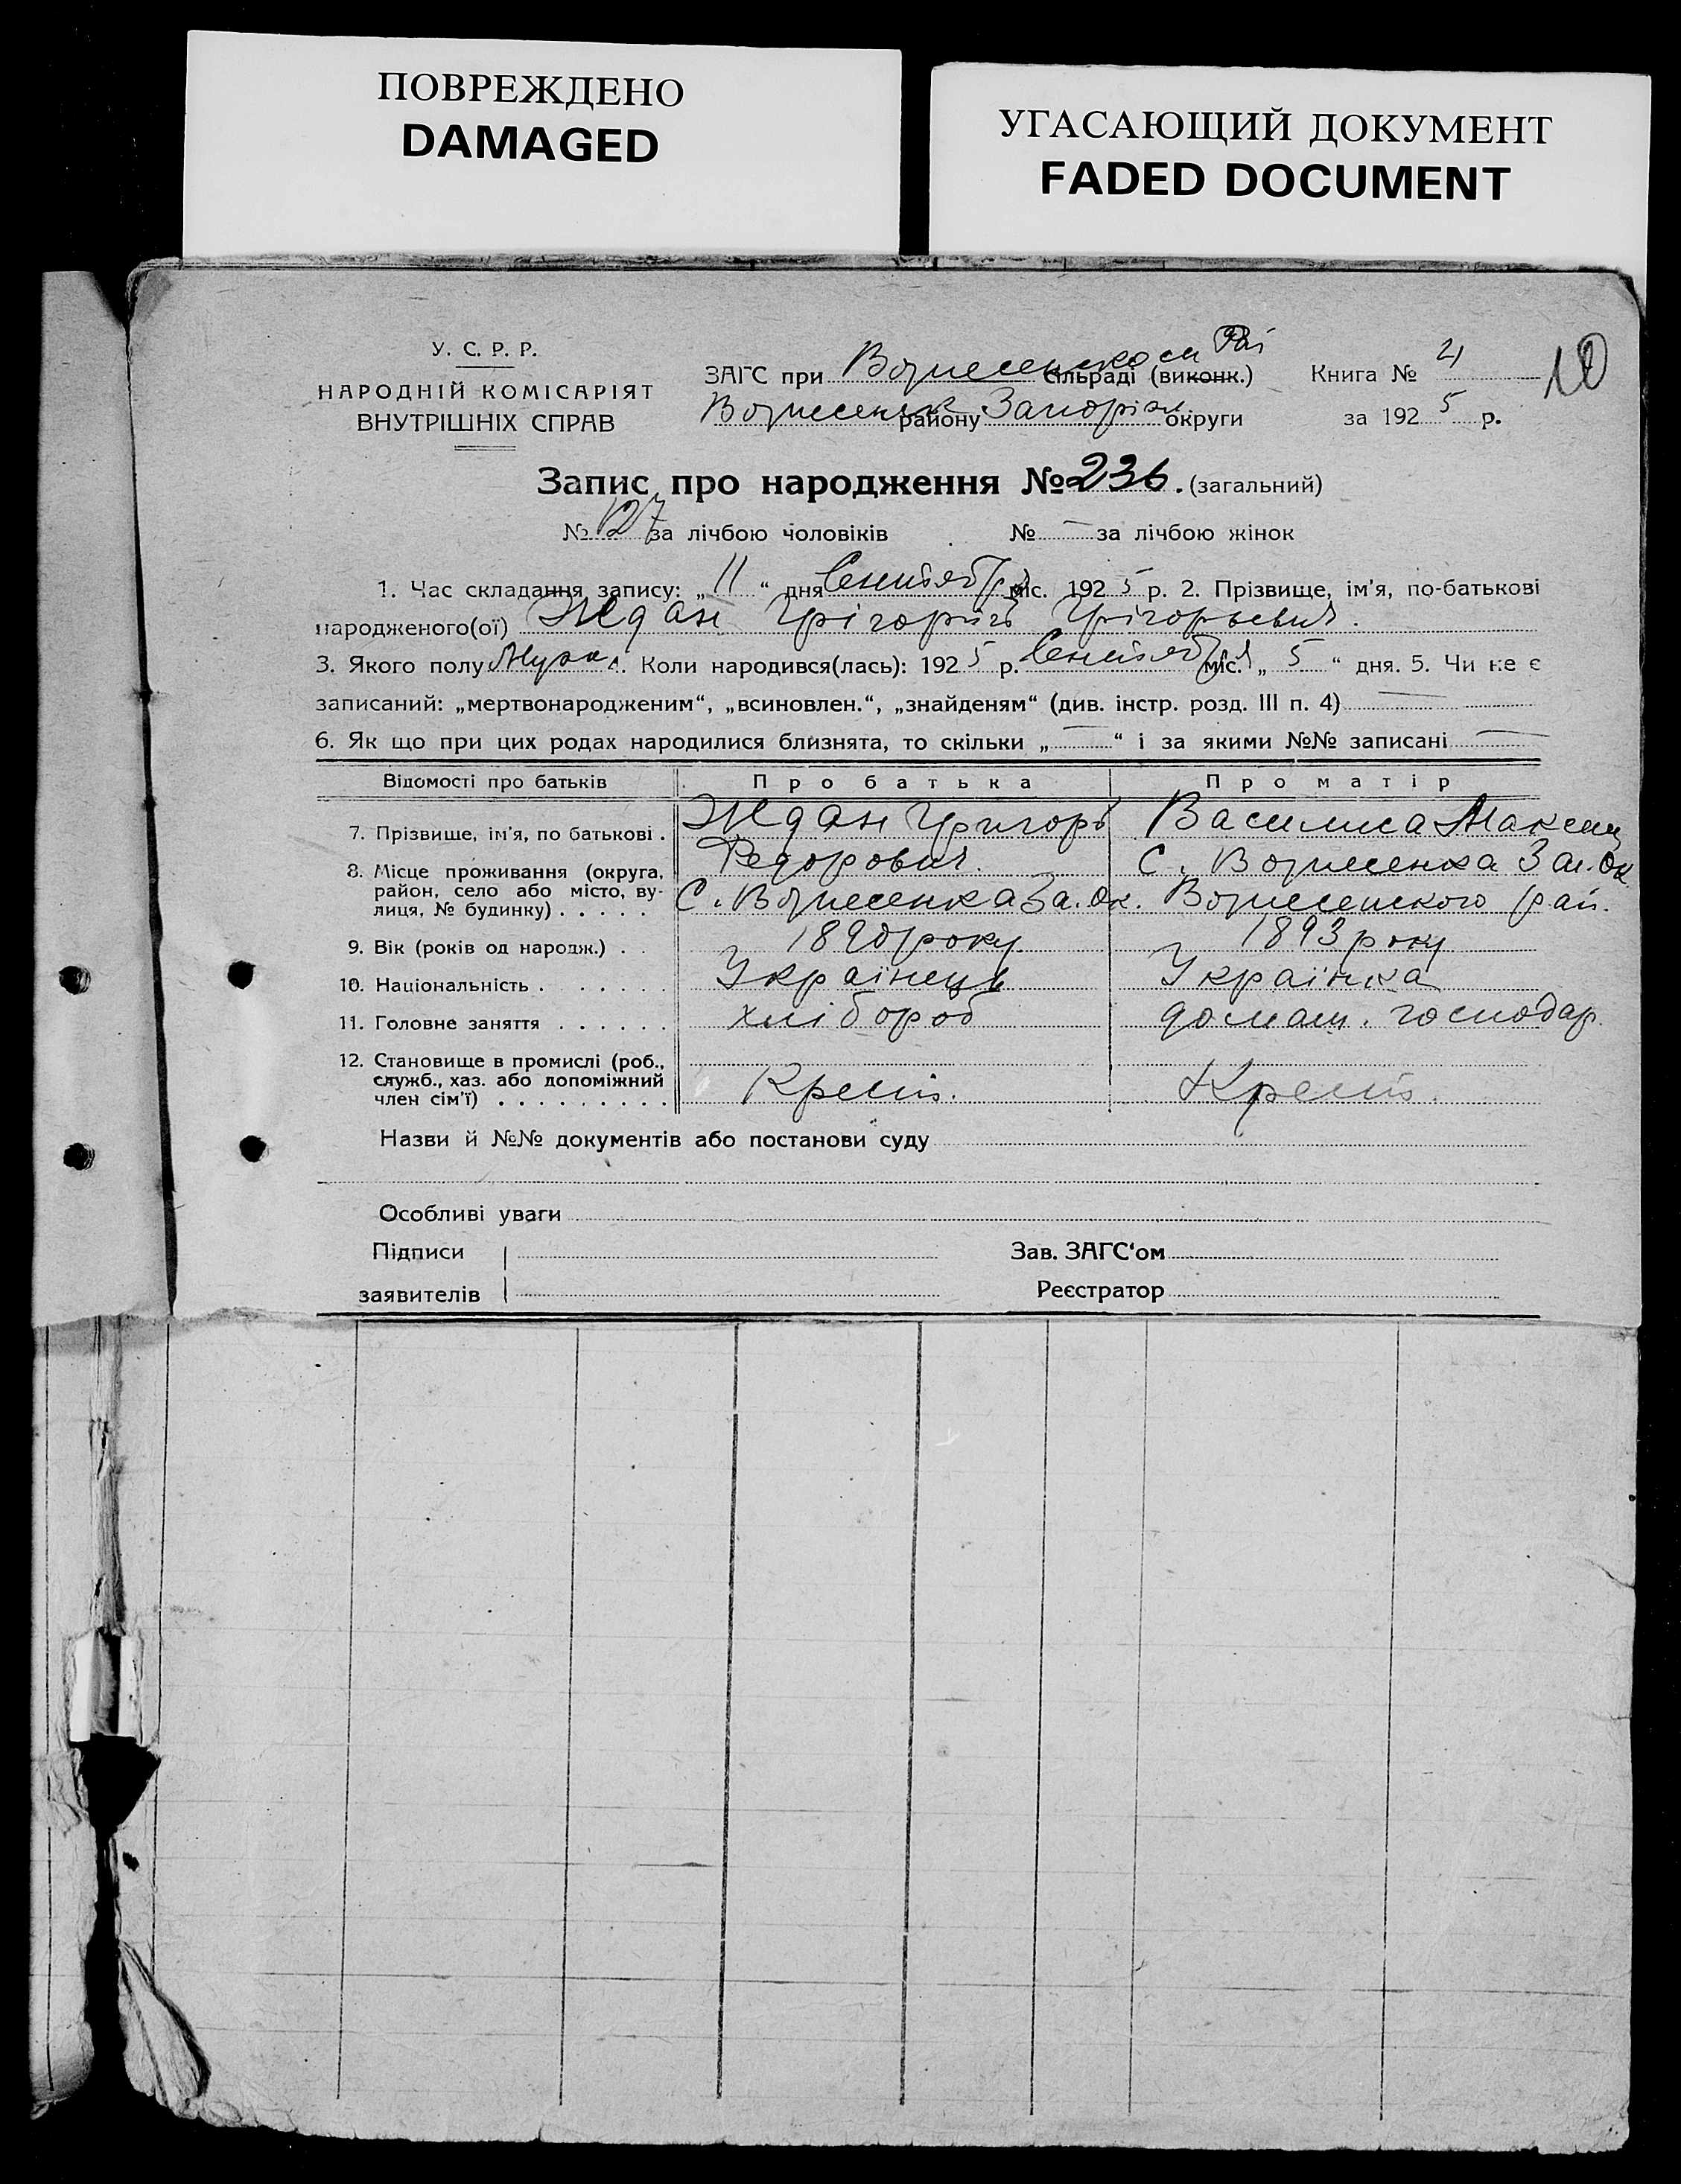 ПОВРЕЖДЕНО
DAMAGED
УГАСАЮЩИЙ ДОКУМЕНТ
FADED DOCUMENT
У. С. Р. Р.
НАРОДНІЙ КОМІСАРІЯТ
ВНУТРІШНІХ СПРАВ
ЗАГС при Вознесенско сільраді (виконк.)
Вознесенск району Запоріж округи
Книга №
10
за 1925 р.
Запис про народження № 236. (загальний)
№ 127 за лічбою чоловіків № — за лічбою жінок
1. Час складання запису: „ 11 “ дня Сентября міс. 1925 р. 2. Прізвище, ім'я, по-батькові
народженого(ої) Ждан Грігорій Грігорьевич.
3. Якого полу Муж. Коли народився(лась): 1925 р. Сентября міс. „ 5 “ дня. 5. Чи не є
записаний: „мертвонародженим“, „всиновлен.“, „знайденям“ (див. інстр. розд. III п. 4) —
6. Як що при цих родах народилися близнята, то скільки „ — “ і за якими №№ записані —
Відомості про батьків Про батька Про матір
7. Прізвище, ім'я, по батькові . Ждан Григорь Василиса Максим
Федорович. С. Вознесенка Зап. Ок
8. Місце проживання (округа, район, село або місто, вулиця, № будинку) . . . . . С. Вознесенка За. Ок. Вознесенского рай.
9. Вік (років од народж.) . . 1890 року 1893 року
10. Національність . . . . . . Українець Українка
11. Головне заняття . . . . . . хлібороб домаш. господар.
12. Становище в промислі (роб., служб., хаз. або допоміжний член сім'ї) . . . . . . . . . Крест. Крест.
Назви й №№ документів або постанови суду
Особливі уваги
Підписи
заявителів
Зав. ЗАГС‘ом
Реєстратор